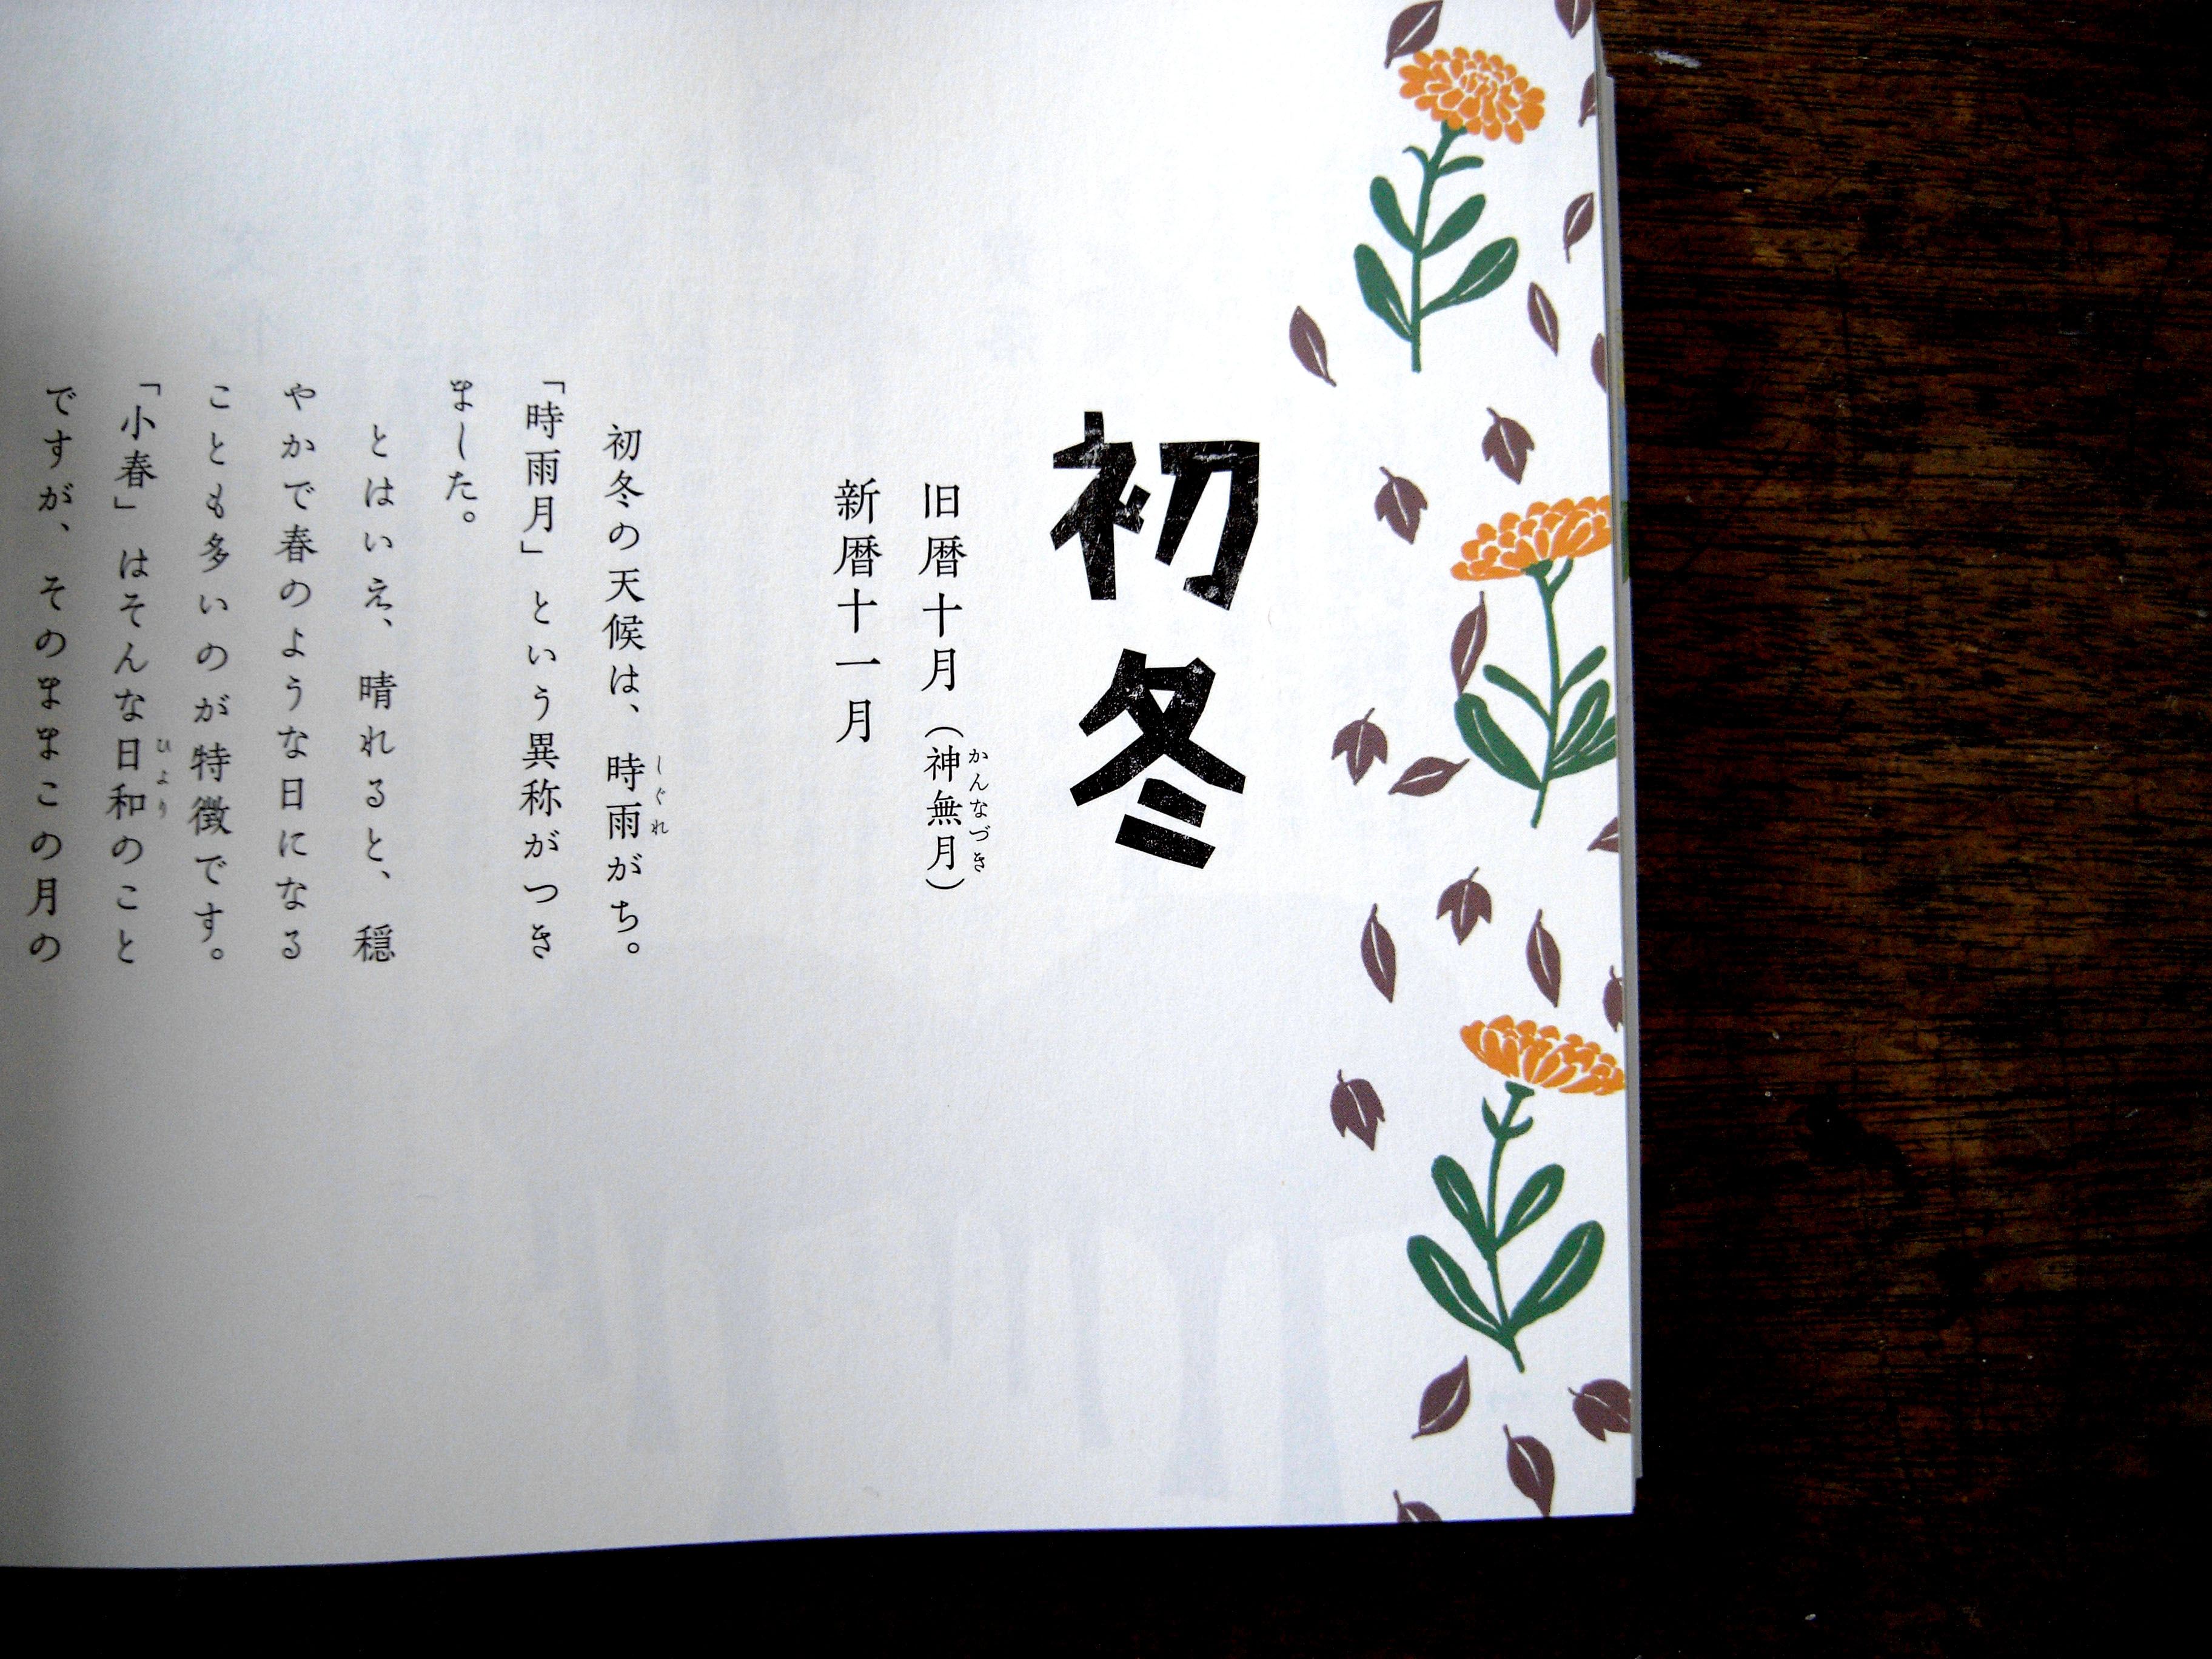 初冬
旧暦十月（神無月）
かんなづき
新暦十一月
初冬の天候は、時雨がち。
しぐれ
「時雨月」という異称がつき
ました。
とはいえ、晴れると、穏
やかで春のような日になる
ことも多いのが特徴です。
「小春」はそんな日和のこと
ひより
ですが、そのままこの月の